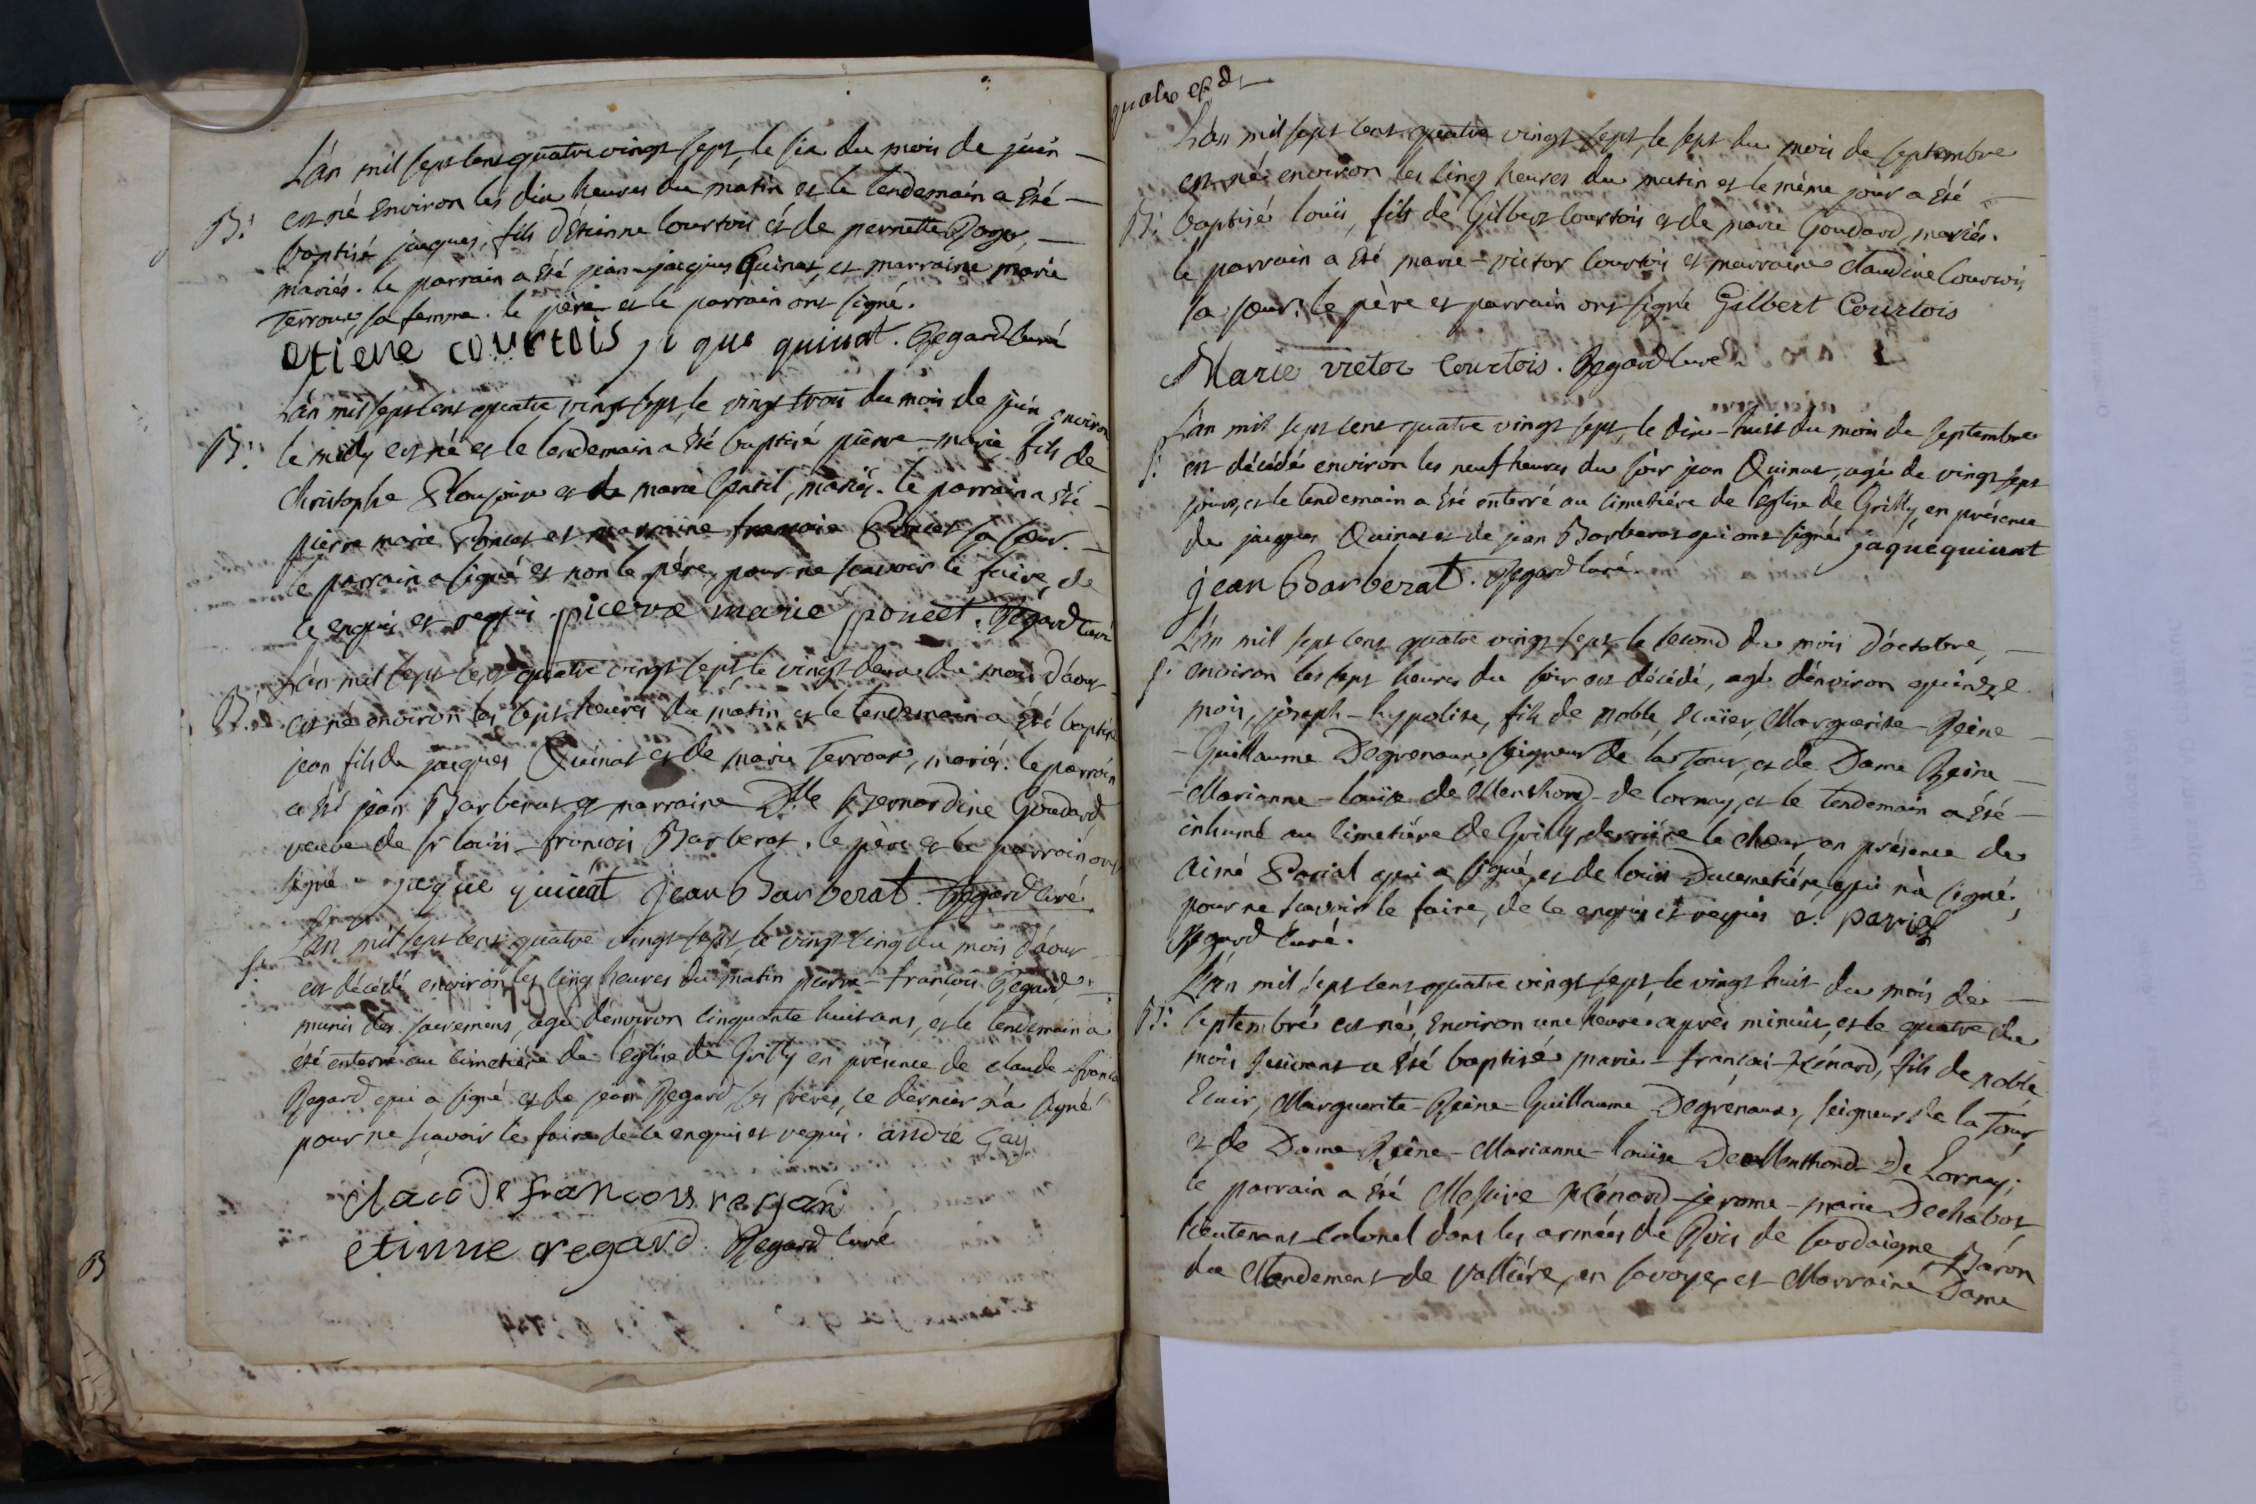 L'an mil sept cent quatre vingt sept, le six du mois de juin
B: est né environ les dix heures du matin et le lendemain a été
baptisé jacques, fils d'Etienne Courtois et de pernette Roger,
mariés. le parrain a été jean-jacques Quinat, et marraine marie
Terroux sa femme. le père et le parrain ont signé.
etiene courtois j que quinat. Regard Curé
L'an mil sept cent quatre vingt sept, le vingt trois du mois de juin environ
B: le midy est né et le lendemain a été baptisé pierre-marie, fils de
Christophe et de marie Gentil, mariés. le parrain a été
pierre marie Poncet et marraine francoise Poncet sa sœur.
le parrain a signé et non le père, pour ne sçavoir le faire, de
ce enquis et requis. pierre marie poncet. Regard Curé
L'an mil sept cent quatre vingt sept, le vingt deux du mois d'aout
B: est né environ les sept heures du matin et le lendemain a été baptisé
jean fils de jacques Quinat et de marie Terroux, mariés. le parrain
a été jean Barberat et marraine Dlle Bernardine Goudard
veuve de sr louis-françois Barberat. le père et le parrain ont
signé jaque quinat jean Barberat. Regard Curé
L'an mil sept cent quatre vingt sept, le vingt cinq du mois d'aout
S: est décédé environ les cinq heures du matin pierre-francois Regard
munis des sacremens, agé d'environ cinquante huit ans, et le lendemain a
été enterré au cimetière de l'eglise de Grilly en présence de claude-francois
Regard qui a signé et de jean Regard ses frères, ce dernier n'a signé
pour ne sçavoir le faire de ce enquis et requis. andré Gay
claude francois regard
etinne regard. Regard Curé
B
quatre et d
L'an mil sept cent quatre vingt sept, le sept du mois de septembre
est né environ les cinq heures du matin et le même jour a été
B: baptisé louis, fils de Gilbert Courtois et de marie Goudard, mariés.
le parrain a été marie-victor Courtois et marraine claudine Courtois
sa sœur. le père et parrain ont signé Gilbert Courtois
Marie victor Courtois. Regard Curé
L'an mil sept cent quatre vingt sept, le dix-huit du mois de septembre
S: est décédé environ les neuf heures du soir jean Quinat, agé de vingt sept
jours, et le lendemain a été enterré au cimetière de l'eglise de Grilly, en présence
de jacques Quinat et de jean Barberat qui ont signé jaque quinat
jean Barberat. Regard Curé.
L'an mil sept cent quatre vingt sept, le second du mois d'octobre,
S: environ les sept heures du soir est décédé, agé d'environ quinze
mois, joseph-hyppolite, fils de noble Ecuïer, Marguerite-Reine
-Guillaume Degrenaux, seigneur de la Tour, et de Dame Reine
-Marianne-louïse de Menthond-de lornay, et le lendemain a été
inhumé au cimetiére de Grilly, derriére le chœur en présence de
aimé Parial qui a signé, et de louis Ducemetiére, qui n'a signé,
pour ne sçavoir le faire, de ce enquis et requis a. parial
Regard Curé.
L'an mil sept cent quatre vingt sept, le vingt huit du mois de
B: septembre est né, environ une heure après minuit, et le quatre du
mois suivant a été baptisé marie-francois-Rénard, fils de noble
Ecuir, Marguerite-Reine-Guillaume Degrenaux, seigneur de la Tour,
et de Dame Reine-Marianne-louïse De Menthond-De Lornay;
le parrain a été Messire Rénard-jerome-marie Dechabot,
lieutenant colonel dans les armées du Roi de sardaigne, Baron
du Mandement de valliére, en savoye, et Marraine Dame